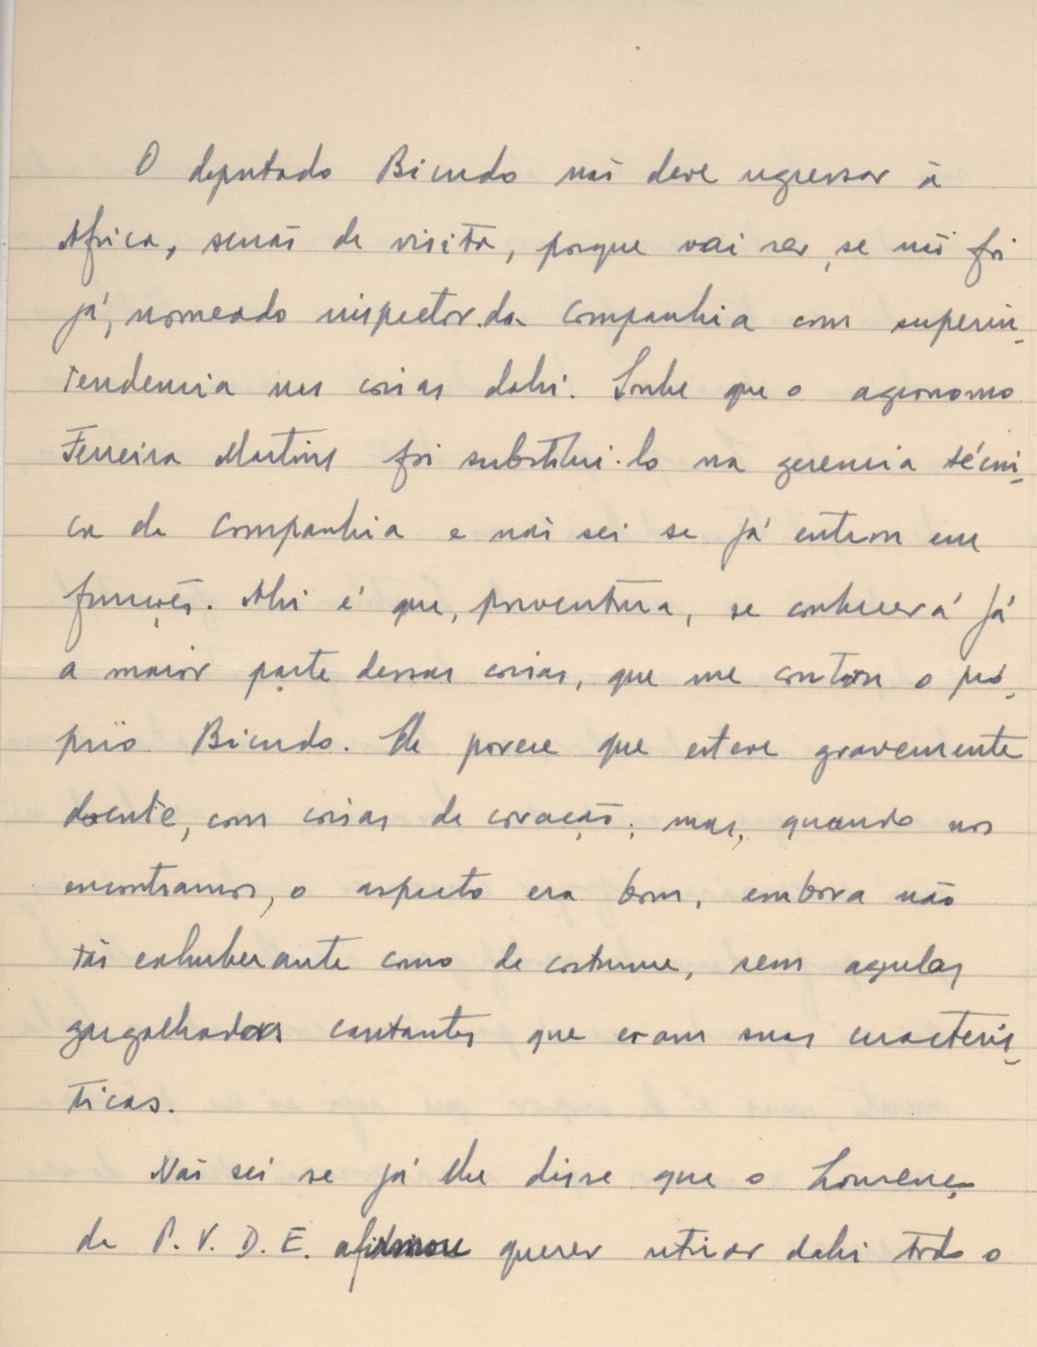 O deputado Bicudo não deve regressar à
Africa, senão de visita, porque vai ser, se não foi
já, nomeado inspector da Companhia com superin-
tendencia nas coisas dahi. Soube que o agronomo
Ferreira Martins foi substitui-lo na gerencia técni-
ca da Companhia e não sei se já entrou em
funções. Ahi é que, porventura, se conhecerá já
a maior parte dessas coisas, que me contou o pró-
prio Bicudo. Ele parece que esteve gravemente
doente, com coisas de coração; mas, quando nos
encontramos, o aspecto era bom, embora não
tão exhuberante como de costume, sem aquelas
gargalhadas cantantes que eram suas caracterís-
ticas.
Não sei se já lhe disse que o Lourenço
da P. V. D. E. afirmou querer retirar dahi todo o